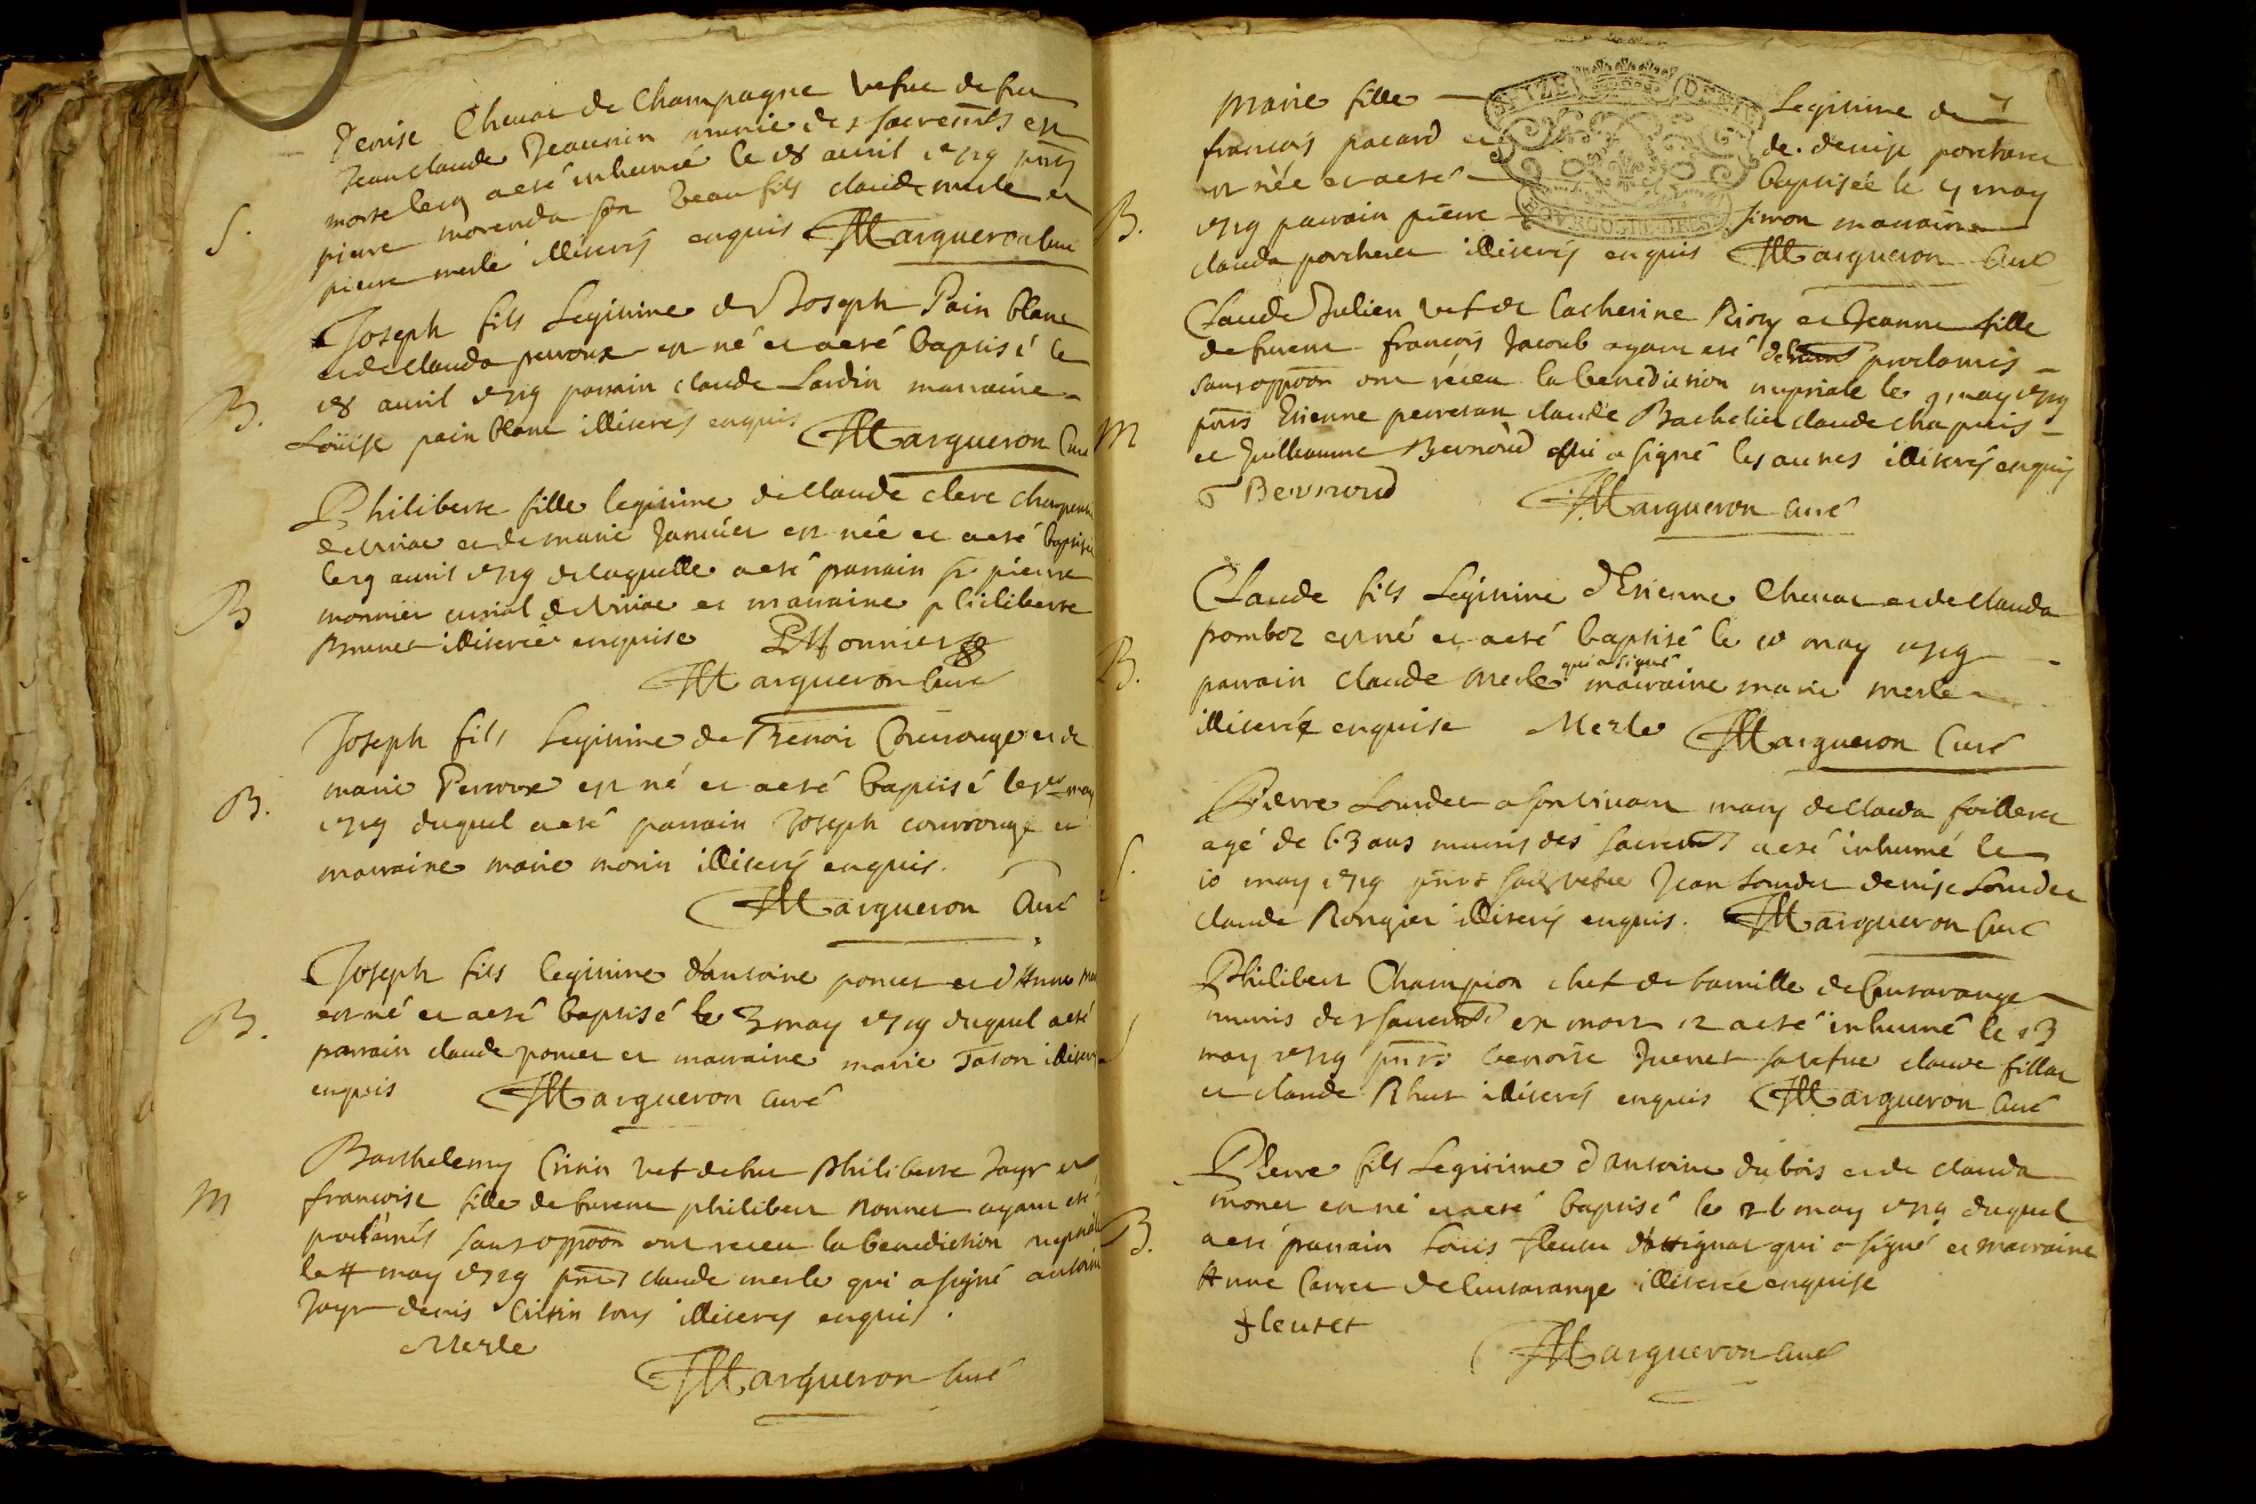 Denise Chevat de Champagne vefue de feu
Jean claude Jeannin munie des sacremts est
morte le17 a esté inhumé le 18 auril 1719 pnts
pierre morenda son beau fils claude merle et
S.
pierre merle illiterés enquis Margueron Curé
Joseph fils Legitime de Joseph Pain blanc
et de Clauda perroux est né et a esté baptisé le
18 auril 1719 parrain claude Lardin marraine
B.
Loüise pain blanc illiterés enquis
Margueron Curé
Philiberte fille legitime de Claude clerc
et de marie Januier est née et a esté baptisée
le19 auril 1719 de laquelle a esté parrain sr pierre
B
monnier et marraine philiberte
Brunet illiterée enquise PMonnier
Margueron Curé
Joseph fils Legitime de Benoit Couurouge et de
marie Perroux est né et a esté baptisé le 1er may
B.
1719 duquel a esté parrain Joseph couurouge et
marraine marie morin illiterés enquis.
Margueron Curé
Joseph fils legitime d'antoine poncet et d'Anne
est né et a esté baptisé le 3 may 1719 duquel a esté
B.
parrain claude poncet et marraine marie Tason illiterés
enquis Margueron curé
Barthelemy vef de feu Philiberte Jayr et
M
francoise fille de furent philibert Ronnet ayant esté
proclamés sans oppoon ont receu la benediction nuptiale
le 4 may 1719 pnts claude merle qui a signé antoine
Jayr denis tous illiterés enquis.
Merle
Margueron Curé
SEIZE DENIE
BOVRGOGNE
Marie fille Legitime de
francois pacard et de denise porcheret
est née et a esté baptisée le 7 may
B.
1719 parrain pierre simon marraine
clauda porcheret illiterés enquis Margueron Curé
Claude Julien vef de Catherine et Jeanne fille
de furent francois Jacoub ayant esté proclamés
sans oppoon ont réceu la benediction nuptiale le 9 may 1719
M
pnts Etienne perretan claude Bachelier claude chapuis
et Guillaume Bernoud qui a signé les autres illiterés enquis
Bernoud Margueron curé
Claude fils Legitime d'Etienne Chevat et de Clauda
pomboz est né et a esté baptisé le 10 may 1719
B.
parrain claude merle qui a signé marraine marie merle
illiterée enquise Merle Margueron Curé
Pierre Lourdet a son viuant mary de Clauda foilleret
agé de 63 ans munis des sacremts a esté inhumé le
S.
10 may 1719 pnts sad vefue Jean Lourdet denise Lourdet
claude Rongier illiterés enquis. Margueron Curé
Philibert Champion chef de famille de Cuisarange
munis des sacremts est mort et a esté inhumé le 13
S
may 1719 pnts benoite Juenet sa vefue claude fillat
et claude Rhut illiterés enquis Margueron Curé
Pierre fils Legitime d'antoine dubois et de clauda
monet est né et a esté baptisé le 26 may 1719 duquel
B.
a esté parrain Loüis fleutet d'Attignat qui a signé et marraine
Anne Carret de Cuisarange illiterée enquise
fleutet
Margueron Curé